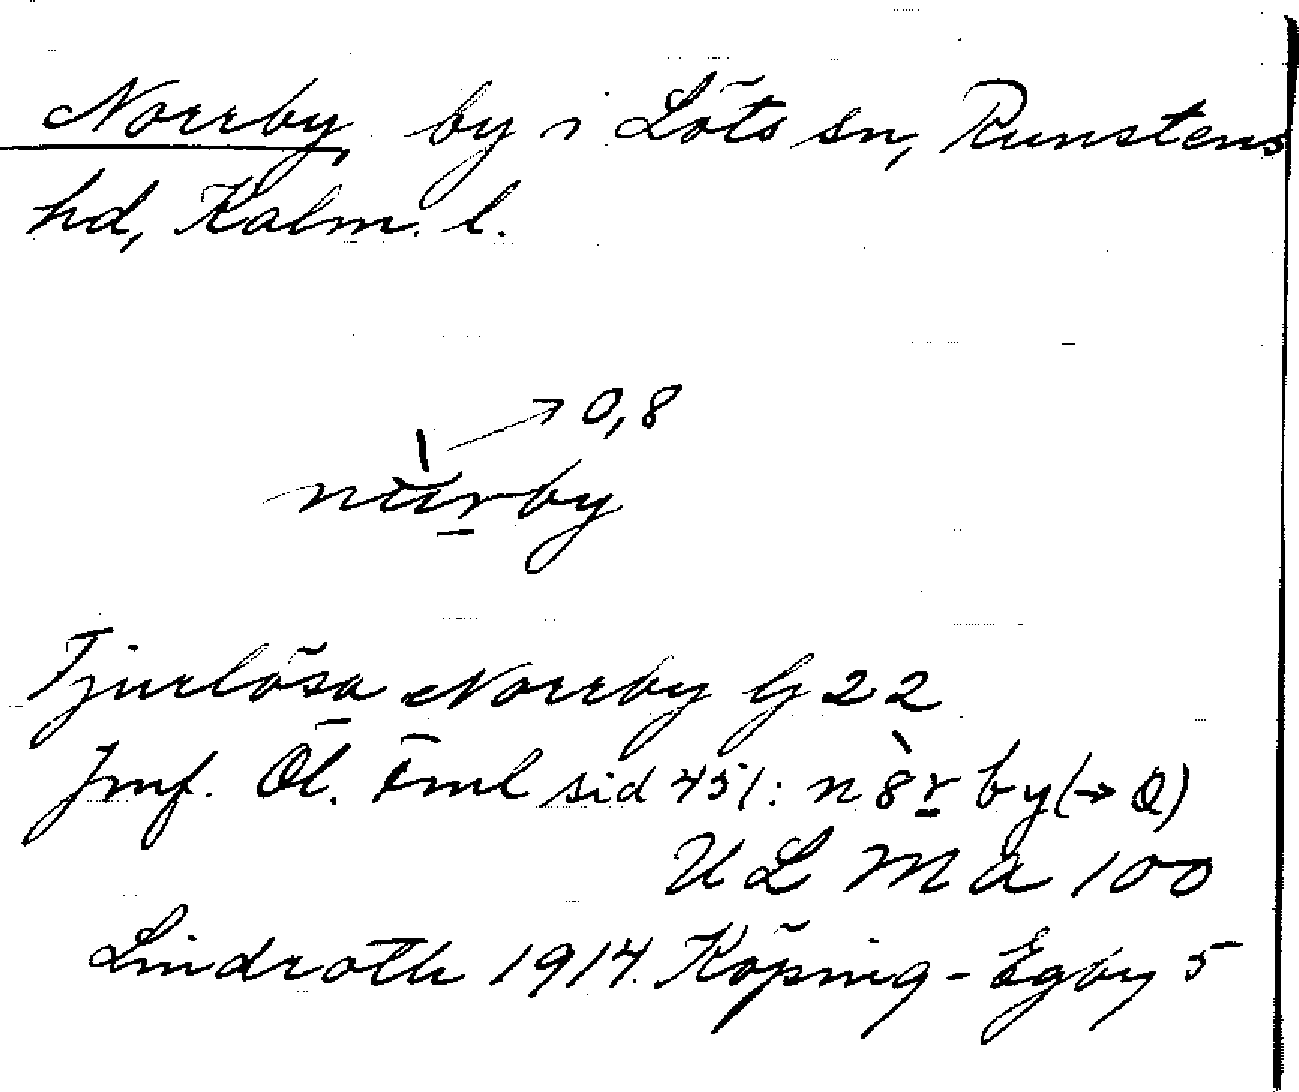 Norrby, by i Löts sn, Runstens
hd, Kalm. l.
→ 0,8
Tjurlösa Norrby G 22
Jmf. Öl. Fml sid 451: n8̀r̲by (→ Q)
ULMA 100
Lindroth 1914. Köping - Egby 5